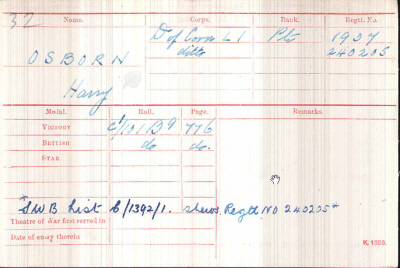 32
Name. Corps. Rank. Regtl. No.
OSBORN D of Corn L I Pte 1937
ditto 240205
Harry
Medal. Roll. Page. Remarks.
VICTORY C/1/101 B9 776
BRITISH do do.
STAR
*SWB List C/1392/1. shews Regtl No 240205*
Theatre of War first served in
Date of entry therein
K. 1380.